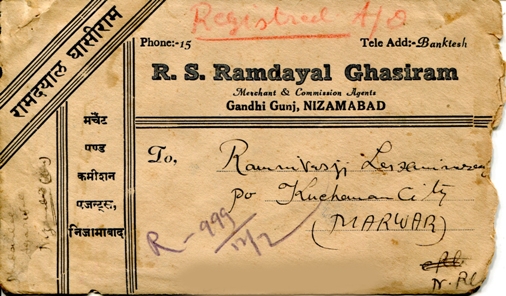 Registred A/D
रामदयाल घासीराम
Phone:-15
Tele Add:-Banktesh
R. S. Ramdayal Ghasiram
Merchant & Commission Agents
Gandhi Gunj, NIZAMABAD
मर्चेंट
एण्ड
कमीशन
एजन्ट्स,
निजामाबाद
To,
Ramnivasji
Po Kuchaman City
(MARWAR)
R-999